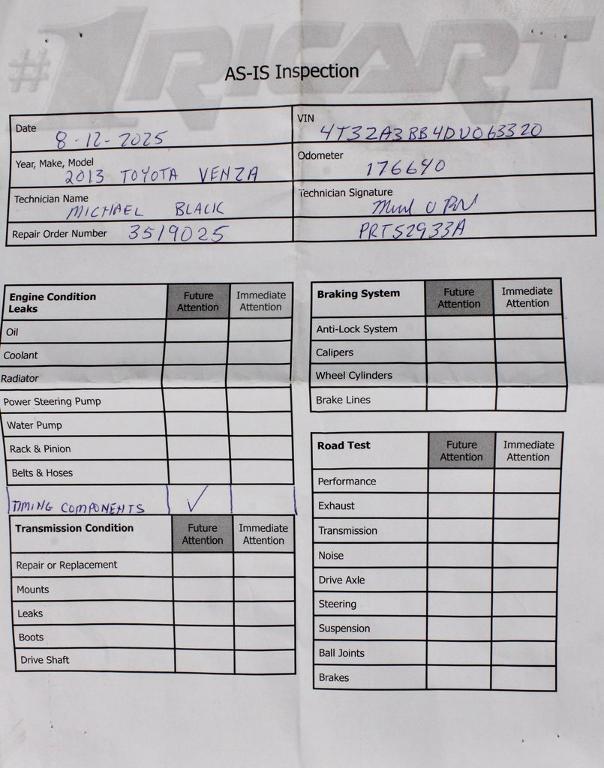 #1 RICART
AS-IS Inspection
Date 8-12-2025
VIN 4T3ZA3BB4DU063320
Year, Make, Model 2013 TOYOTA VENZA
Odometer 176640
Technician Name MICHAEL BLACK
Technician Signature
Repair Order Number 3519025
PRT52933A
Engine Condition Leaks Future Attention Immediate Attention
Oil
Coolant
Radiator
Power Steering Pump
Water Pump
Rack & Pinion
Belts & Hoses
TIMING COMPONENTS ✓
Transmission Condition Future Attention Immediate Attention
Repair or Replacement
Mounts
Leaks
Boots
Drive Shaft
Braking System Future Attention Immediate Attention
Anti-Lock System
Calipers
Wheel Cylinders
Brake Lines
Road Test Future Attention Immediate Attention
Performance
Exhaust
Transmission
Noise
Drive Axle
Steering
Suspension
Ball Joints
Brakes